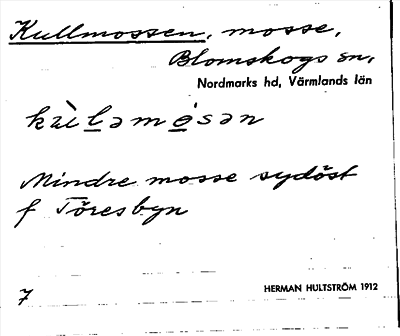 Kullmossen, mosse,
Blomskogs sn,
Nordmarks hd, Värmlands län
Mindre mosse sydöst
f Töresbyn
7
HERMAN HULTSTRÖM 1912